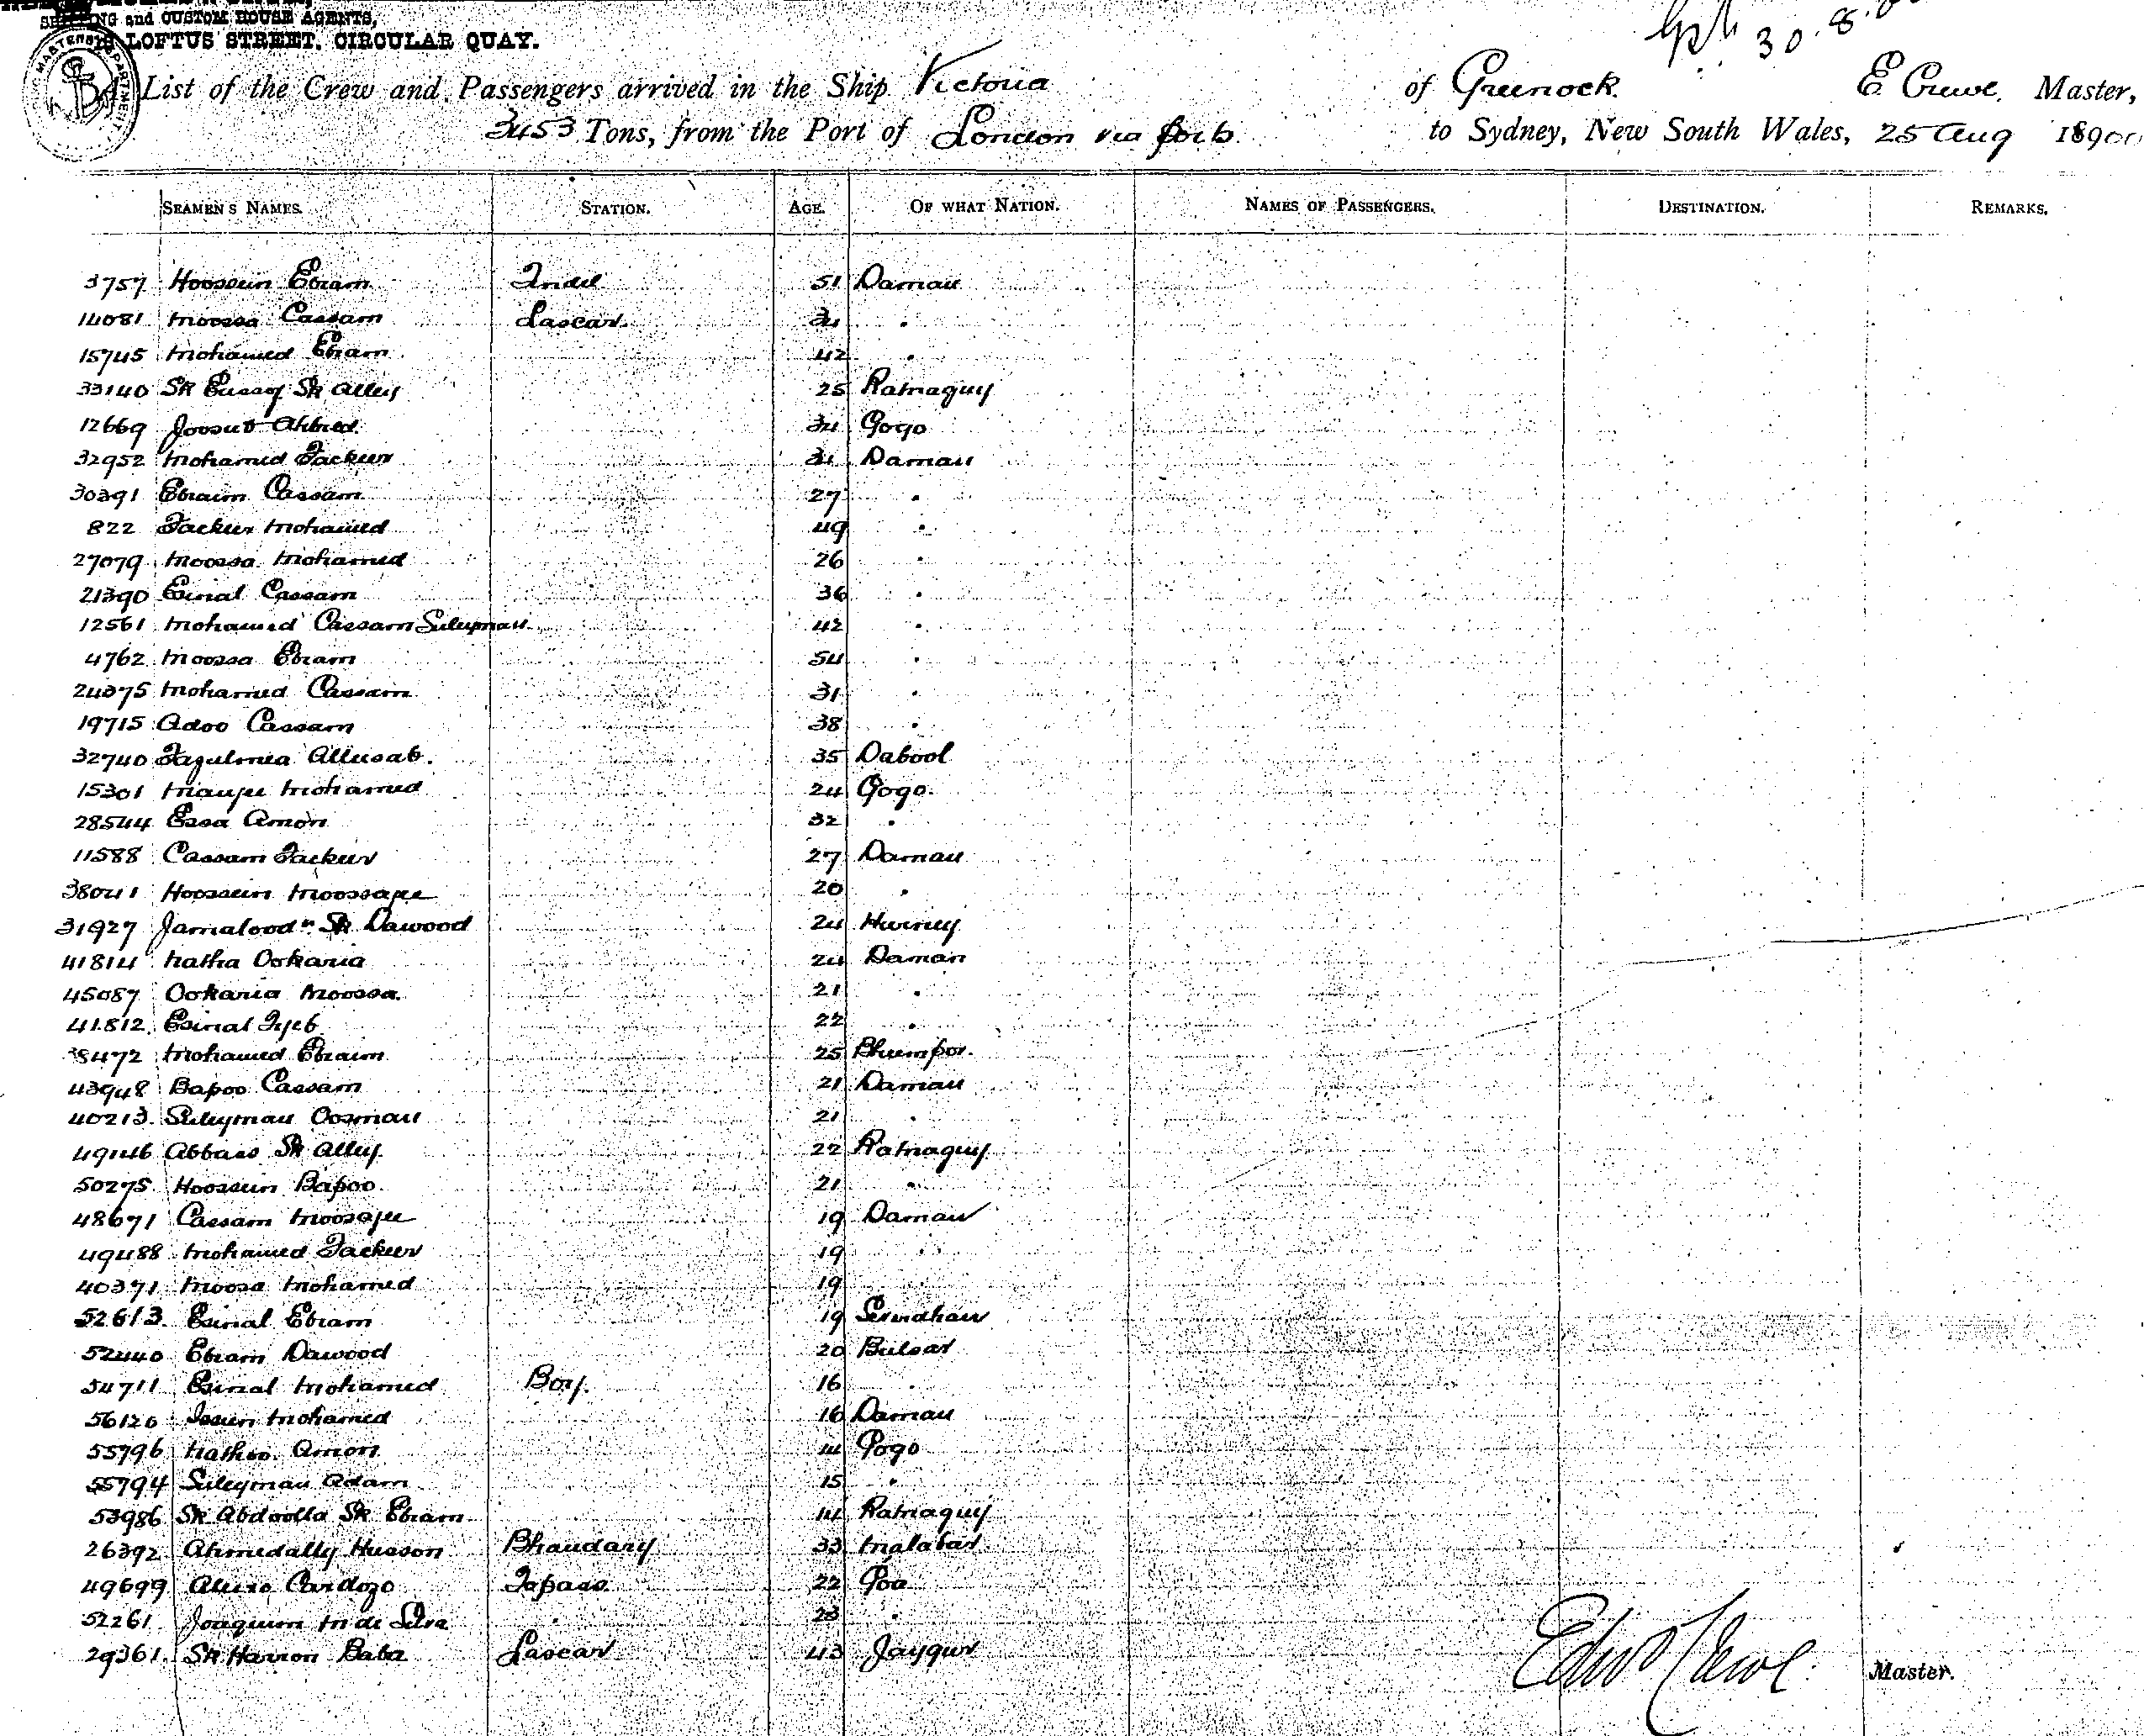 SHIPPING and CUSTOM HOUSE AGENTS,
LOFTUS STREET. CIRCULAR QUAY.
30.8.
A List of the Crew and Passengers arrived in the Ship Victoria of Greenock. E. Crewe. Master,
3453 Tons, from the Port of London via ports to Sydney, New South Wales, 25 Aug 18900
SEAMEN'S NAMES. STATION. AGE. OF WHAT NATION. NAMES OF PASSENGERS. DESTINATION. REMARKS.
3757 Hoossein Ebram Tindel 51 Daman
14081 Moossa Cassam Lascar 34 "
15745 Mohamed Ebram 42 "
33140 Sk Eussof Sk Alley 25 Ratnaguy
12669 Joosub Ahmed 34 Gogo
32952 Mohamed Fackeer 31 Daman
30391 Ebraim Cassam 27 "
822 Fackeer Mohamed 49 "
27079 Moossa Mohamed 26 "
21390 Esinal Cassam 36 "
12561 Mohamed Cassam Suleyman 42 "
4762 Moossa Ebram 54 "
24375 Mohamed Cassam 31 "
19715 Adoo Cassam 38 "
32740 Allusab. 35 Dabool
15301 Mohamed 24 Gogo.
28544 Essa Amon 32 "
11588 Cassam Fackeer 27 Daman
38041 Hoossein Moossajee 20 "
31927 Jamalood"n Sk Dawood 24 Hurney
41814 Natha Ookaria 24 Daman
45087 Ookaria Moossa. 21 "
41812 Esinal Tyeb 22 "
38472 Mohamed Ebraim 25 Bhumpor.
43948 Bapoo Cassam 21 Daman
40213 Suleyman Oosman 21 "
49146 Abbass Sk Alley 22 Ratnaguy
50275 Hoossein Bapoo 21 "
48671 Cassam Moosajee 19 Daman
49488 Mohamed Fackeer 19 "
40371 Moosa Mohamed 19
52613 Esinal Ebram 19
52440 Ebram Dawood 20 Bulsar
54711 Esinal Mohamed Boy. 16 "
56126 Mohamed 16 Daman
55796 Nathoo Amon 14 Gogo
55794 Suleyman Adam 15 "
53986 Sk Abdoolla Sk Ebram 14 Ratnaguy
26392 Ahmedally Husson Bhandary 33 Malabar
49699 Cardozo Topass 22 Goa
52261 Joaquim M de Silva " 23 "
29361 Sk Harron Baba Lascar 43 Jaygur
Edw Crewe Master.